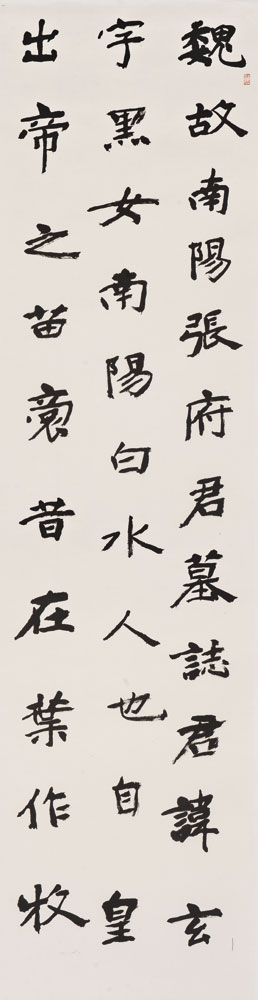 魏故南陽張府君墓誌君諱玄
字黑女南陽白水人也自皇
出帝之苗裔昔在葉作牧